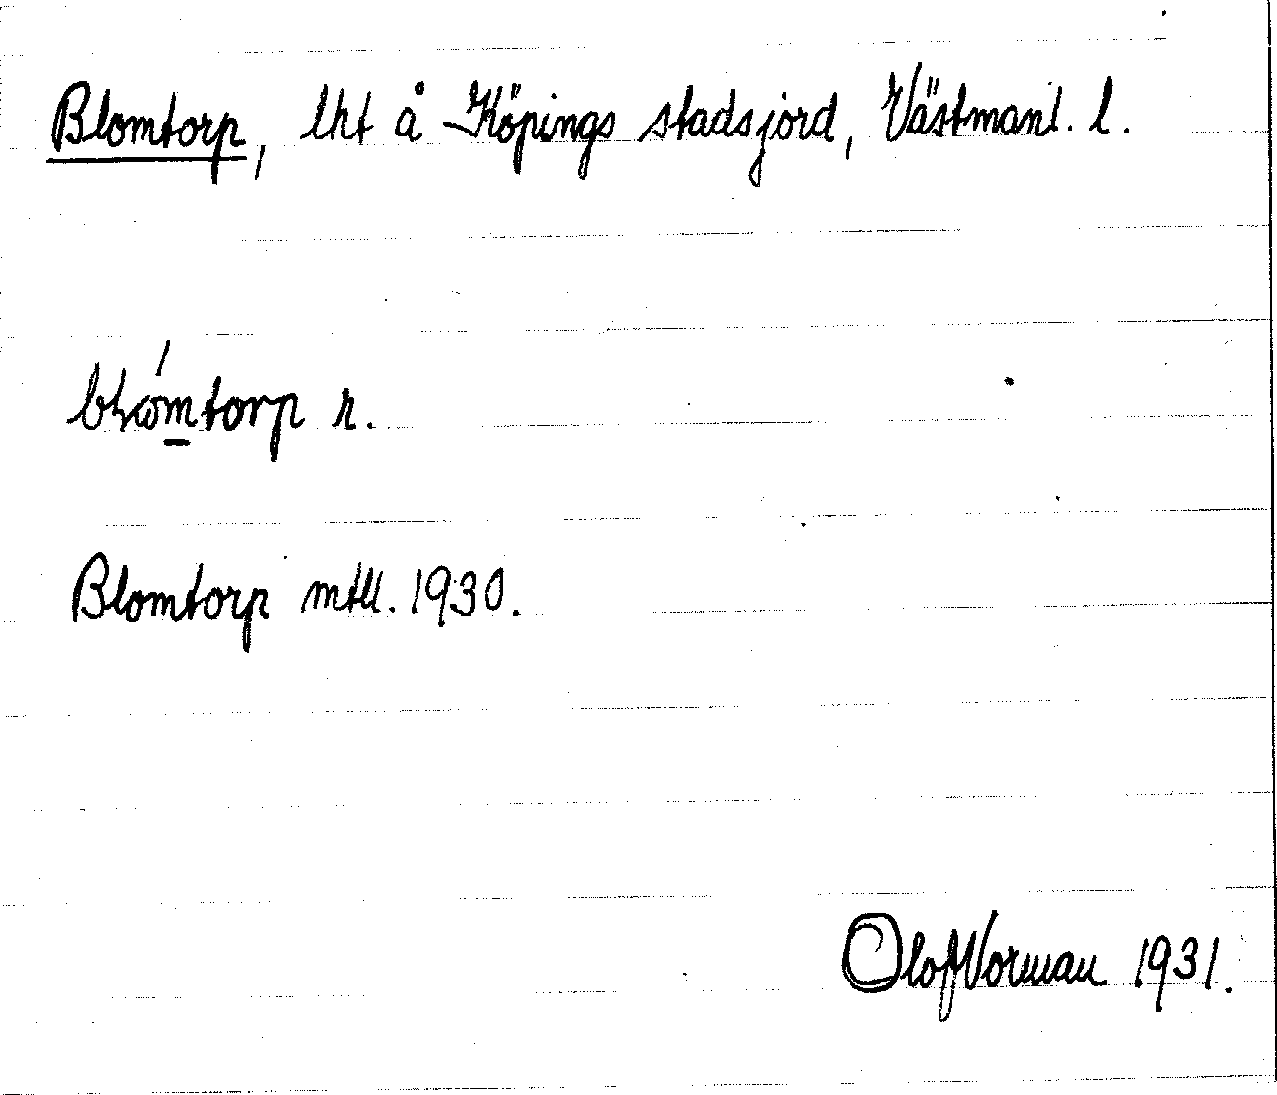 Blomtorp, lht å Köpings stadsjord, Västmanl. l.
blómtorp r.
Blomtorp mtll. 1930.
Olof Norman 1931.